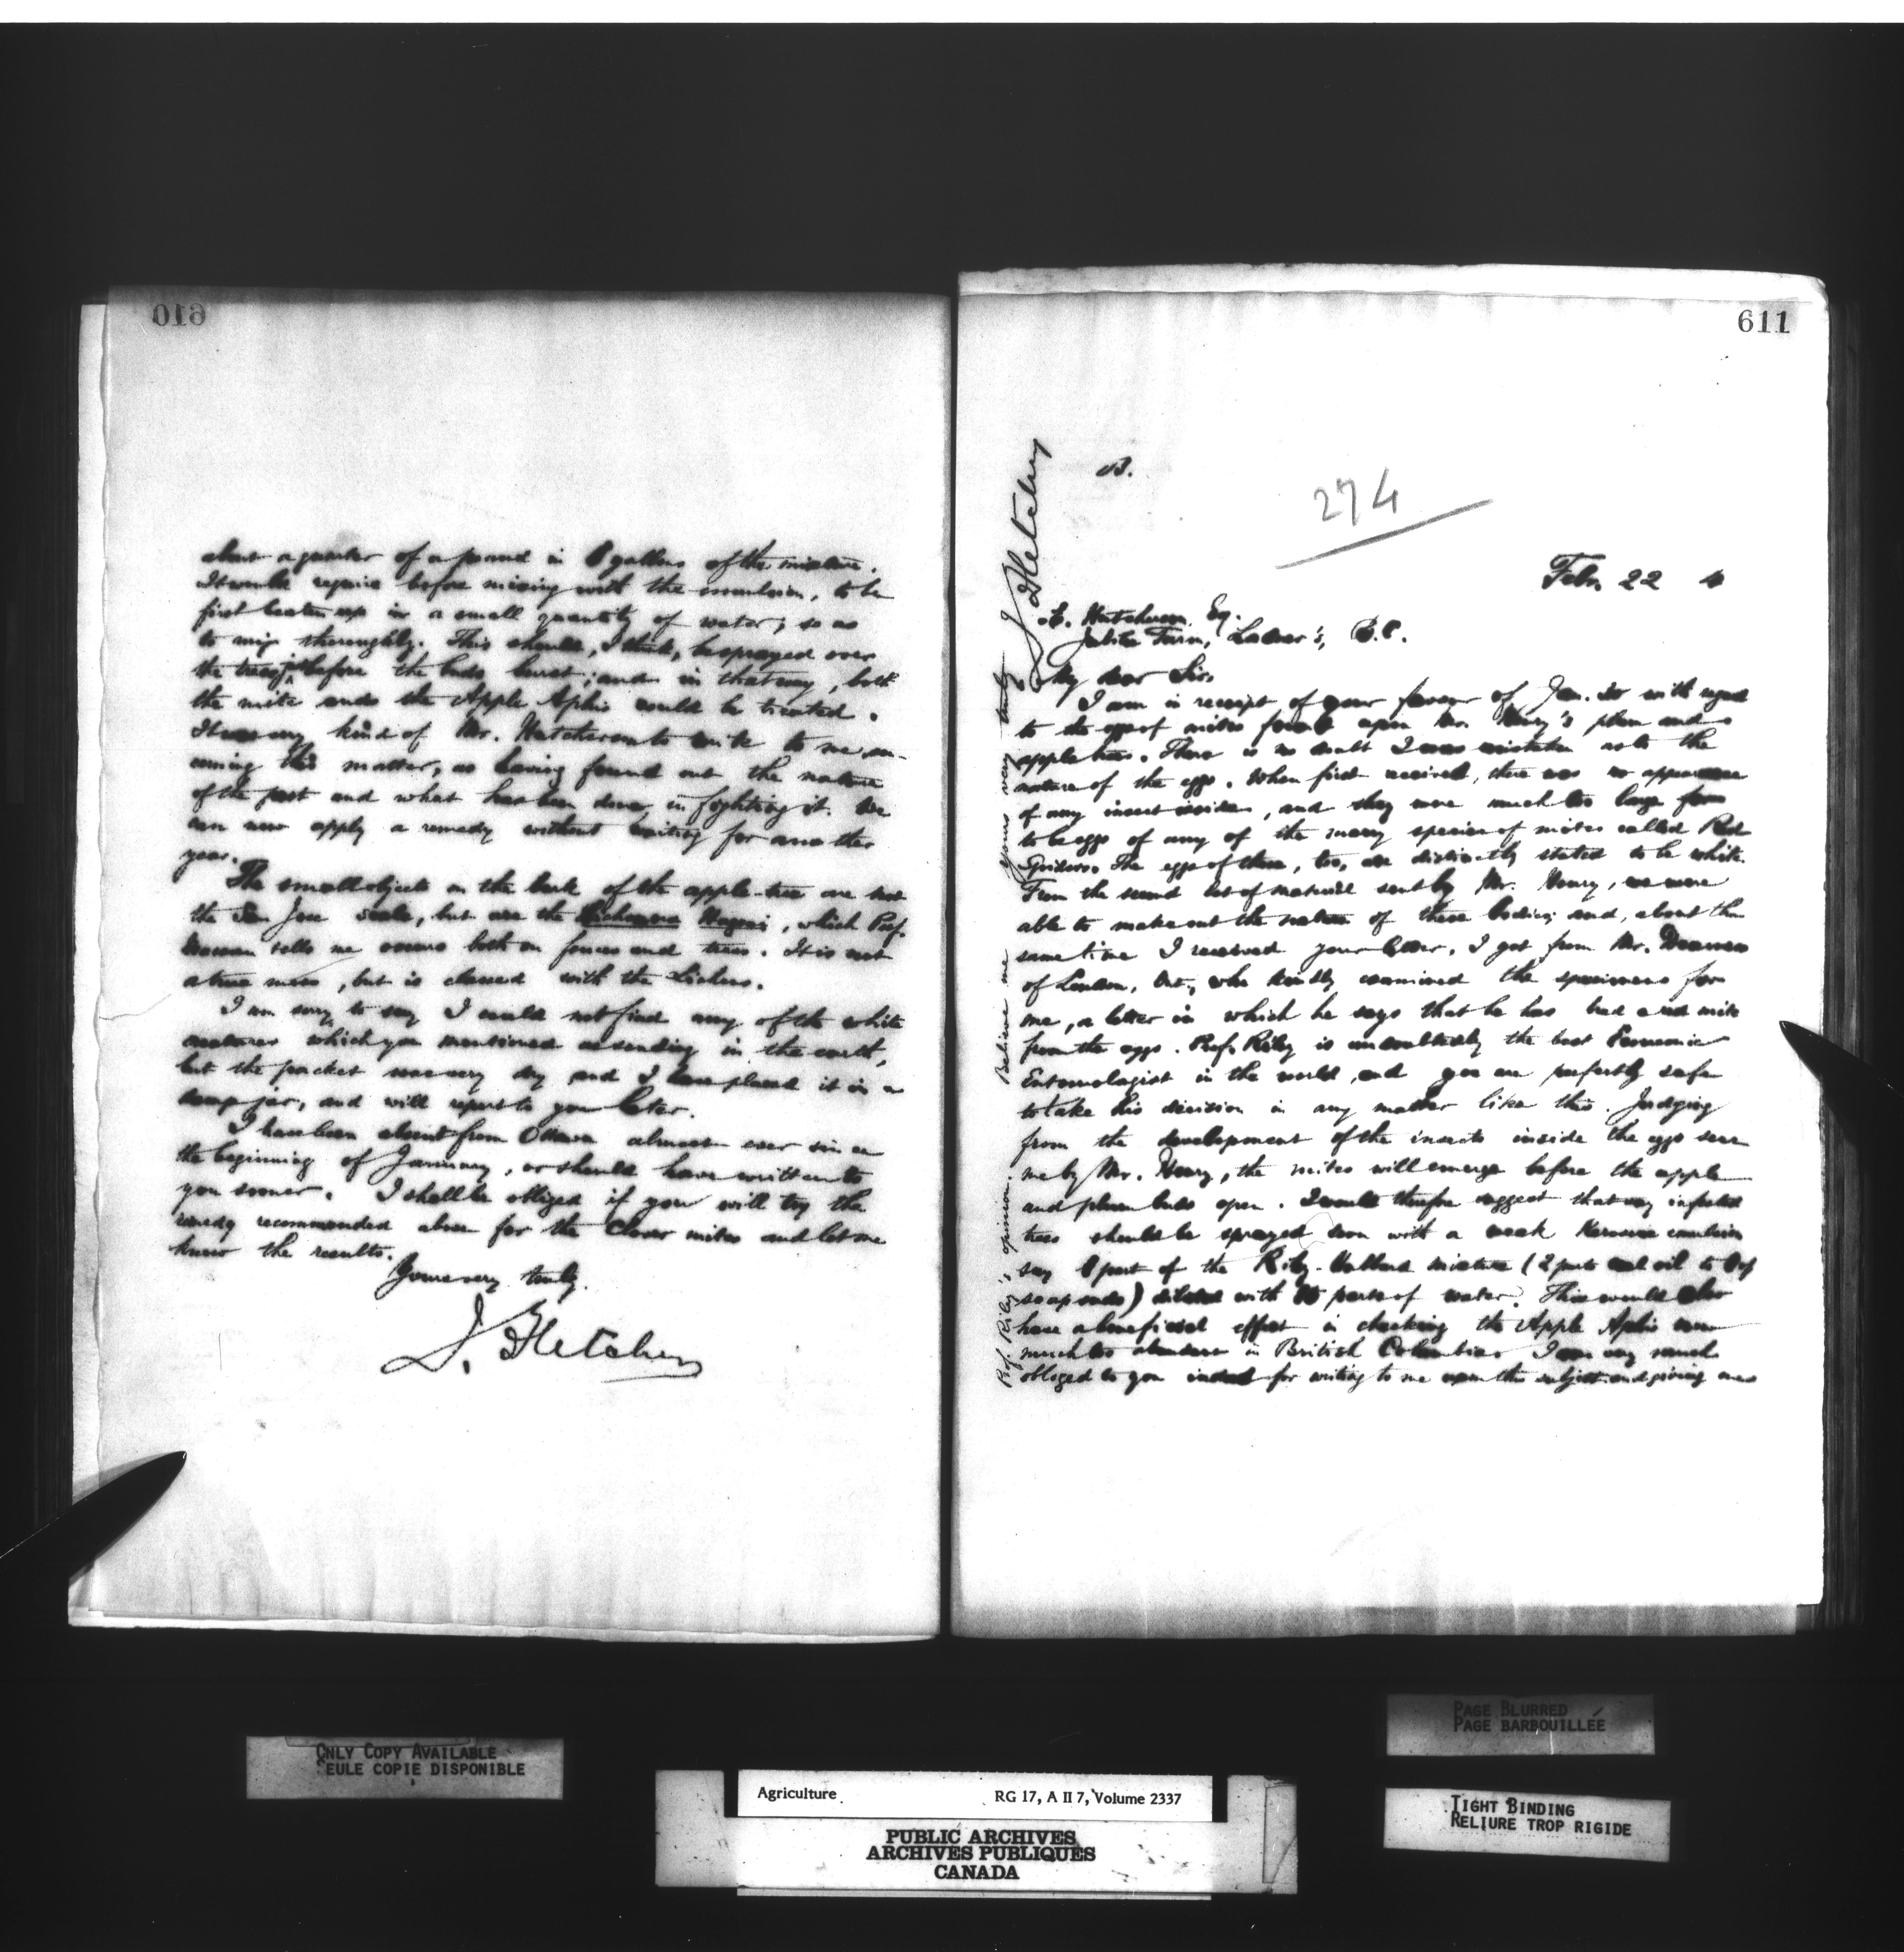 610
about a quarter of a pound in 8 gallons of the mixture.
It would require before mixing with the emulsion, to be
first beaten up in a small quantity of water, so as
to mix thoroughly. This should, I think, be sprayed over
the trees just before the buds burst; and in that way, both
the mite and the Apple Aphis would be treated.
It was very kind of Mr. Hutcherson to write to me con-
cerning this matter, as having found out the nature
of the pest and what has been done in fighting it. We
can now apply a remedy without waiting for another
year.
The small objects on the bark of the apple-tree are not
the San Jose scale, but are the , which Prof.
Macoun tells me occurs both on fences and trees. It is not
a true moss, but is classed with the Lichens.
I am sorry to say I could not find any of the white
creatures which you mentioned as sending in the earth,
but the packet was very dry and I have placed it in a
damp jar, and will report to you later.
I have been absent from Ottawa almost ever since
the beginning of January, or should have written to
you sooner. I shall be obliged if you will try the
remedy recommended above for the Clover mites and let me
know the results.
Yours very truly.
J. Fletcher
611
B.
274
Feb. 22
E. Hutcherson, Esq.
Jubilee Farm, Ladner's, B.C.
My dear Sir,
I am in receipt of your favour of Jan. 30 with regard
to the eggs of mites found upon Mr. Henry's plum and
apple trees. There is no doubt I was mistaken as to the
nature of the eggs. When first received, there was no appearance
of any insect inside, and they were much too large
to be eggs of any of the many species of mites called Red
Spiders. The eggs of these, too, are distinctly stated to be white.
From the second lot of material sent by Mr. Henry, we were
able to make out the nature of these bodies; and, about the
same time I received your letter, I got from Mr. Dearness
of London, Ont., who kindly examined the specimens for
me, a letter in which he says that he has bred a red mite
from the eggs. Prof. Riley is undoubtedly the best Economic
Entomologist in the world, and you are perfectly safe
to take his decision in any matter like this. Judging
from the development of the insects inside the eggs sent
me by Mr. Henry, the mites will emerge before the apple
and plum buds open. I would therefore suggest that any infested
trees should be sprayed soon with a weak Kerosene emulsion
say 1 part of the Riley-Hubbard mixture (2 parts coal oil to 1 of
soap suds) diluted with parts of water. This would also
have a beneficial effect in checking the Apple Aphis now
much too abundant in British Columbia. I am very much
obliged to you indeed for writing to me upon this subject and giving me
Prof. Riley's opinion. Believe me yours very truly
J. Fletcher
ONLY COPY AVAILABLE
SEULE COPIE DISPONIBLE
PAGE BLURRED
PAGE BARBOUILLÉE
TIGHT BINDING
RELIURE TROP RIGIDE
Agriculture RG 17, A II 7, Volume 2337
PUBLIC ARCHIVES
ARCHIVES PUBLIQUES
CANADA